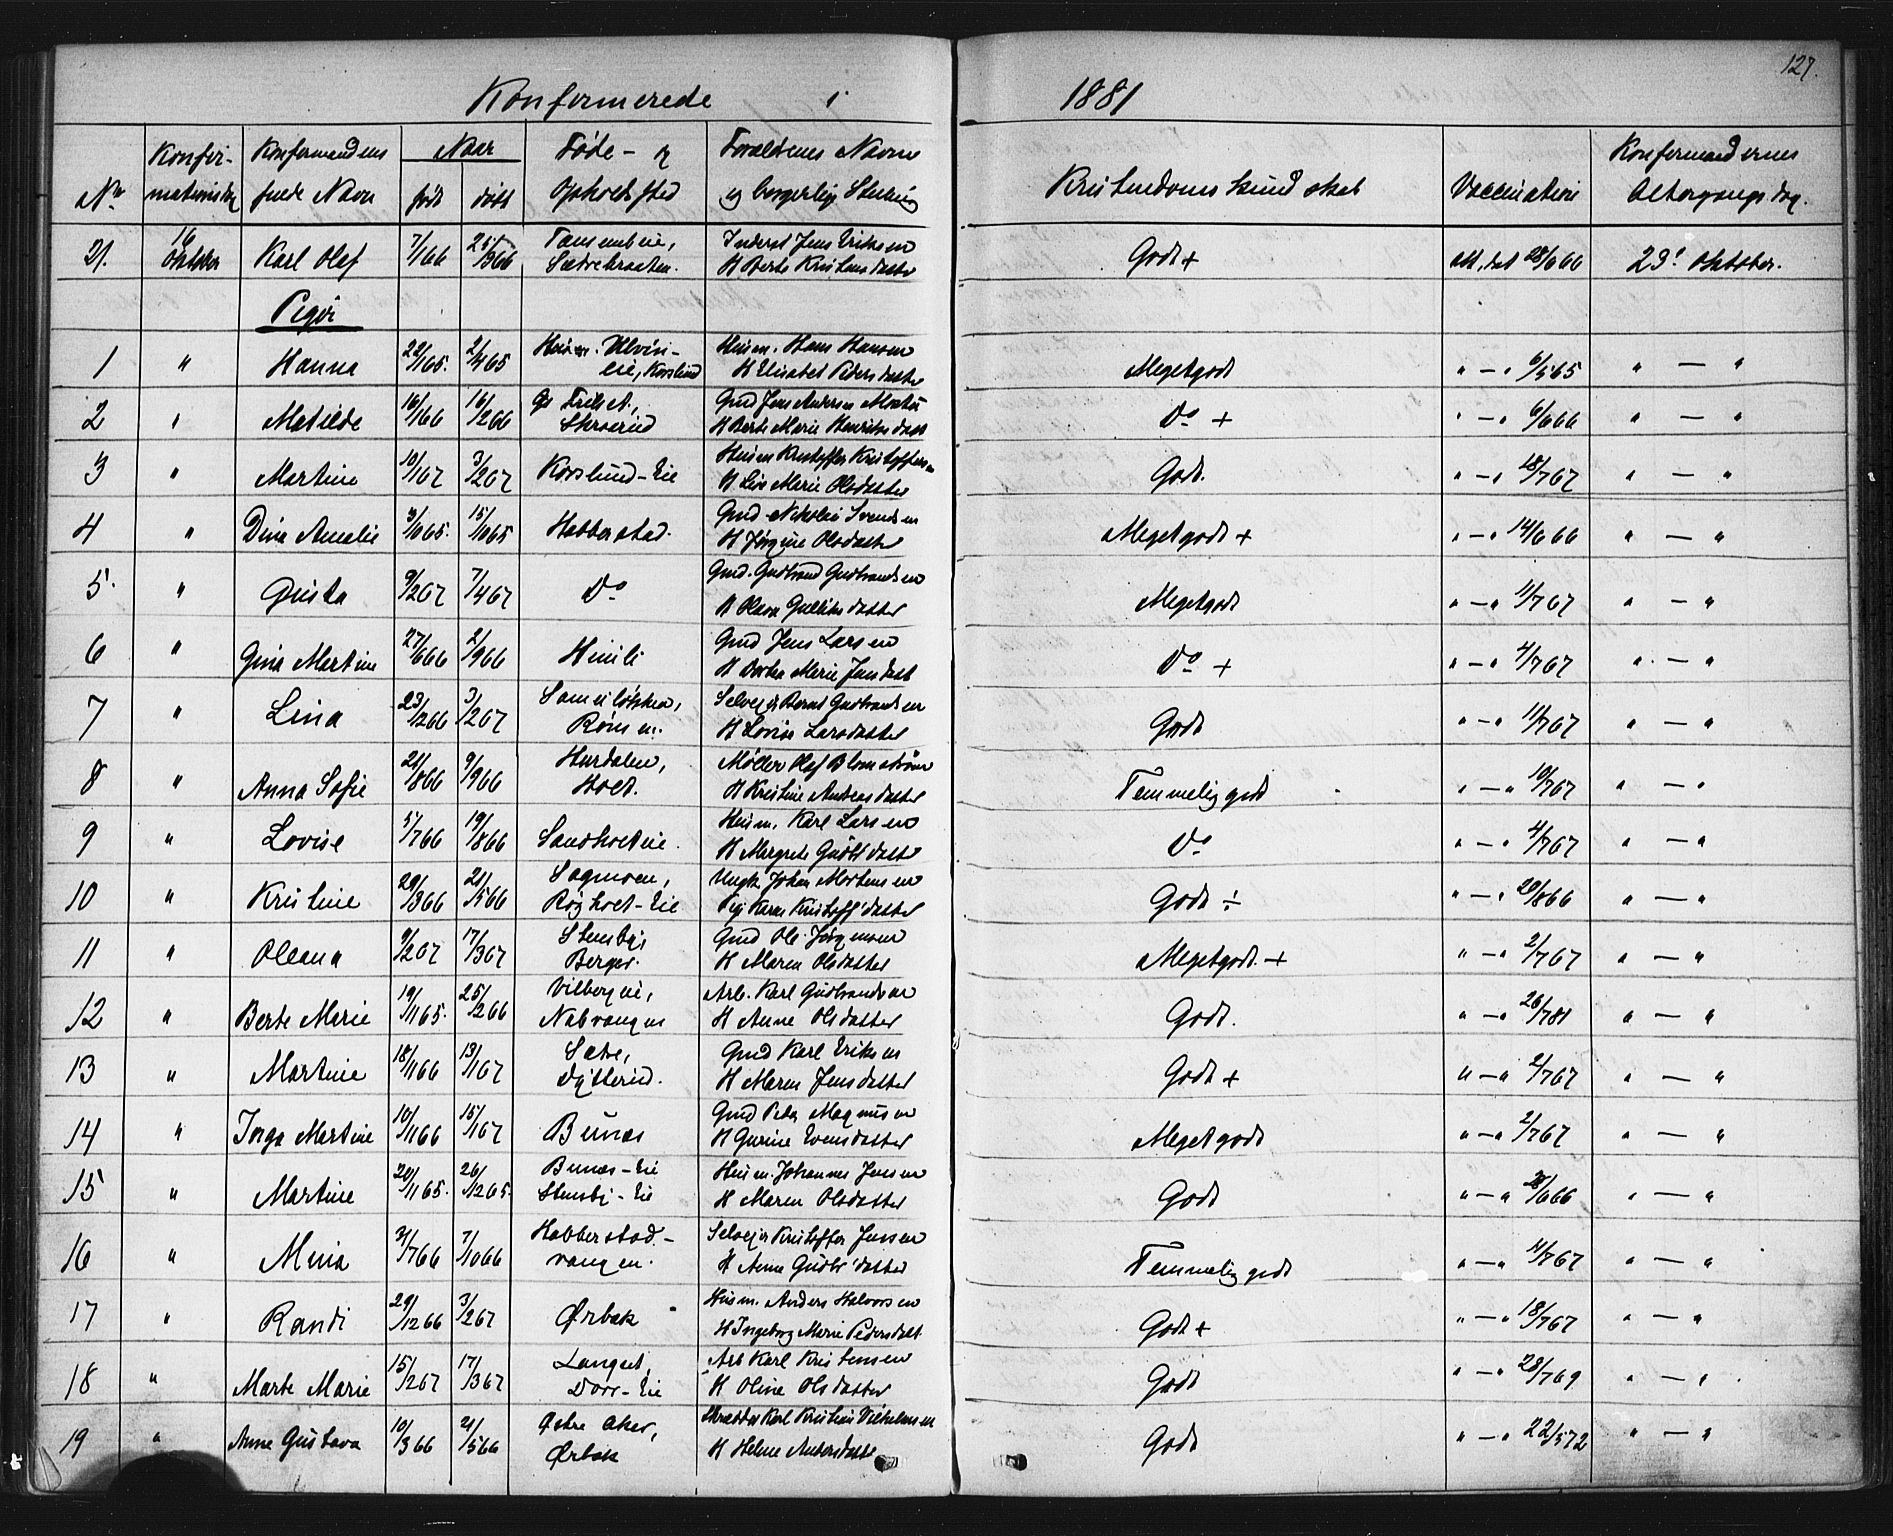 127.
Konfirmerede i 1881
No | Konfirmationsdag | Konfirmandens fulde Navn | Naar født | døbt | Føde- og Opholdssted | Forældrenes Navne og borgerlige Stilling | Kristendomskundskab | Vaccination | Konfirmandernes Altergangsdag.
21. | 16 Oktober | Karl Olaf | 7/1 66 | 25/3 66 | Sætrebraaten. | Inderst Jens Eriksen H Berte Kristensdatter | Godt + | att. dat 28/6 66 | 23' Oktober.
Piger
1 | " | Hanna | 22/1 65. | 2/4 65 | Ulvin-eie, Korslund | Husm. Hans Hansen H Elisabet Pedersdatter | Megetgodt | " — " 6/5 65 | " — "
2 | " | Matilde | 16/1 66 | 16/2 66 | Skrærud | Gmd Jens Andersen H Berte Marie Henriksdatt | Do + | " — " 6/6 66 | " — "
3 | " | Martine | 10/1 67 | 3/2 67 | Korslund-Eie | Husm Kristoffer Kristoffersen H Live Marie Olsdatter | Godt. | " — " 18/7 67 | " — "
4 | " | Dina Amalie | 3/10 65. | 15/10 65 | Habberstad. | Gmd Nikolai Svendsen H Jørgine Olsdatter | Megetgodt + | " — " 14/6 66 | " — "
5. | " | Gusta | 9/2 67 | 7/4 67 | Do | Gmd. Gudbrand Gudbrandsen H Olava Gulliksdatter | Megetgodt | " — " 11/7 67 | " — "
6 | " | Gina Martine | 27/6 66 | 2/9 66 | Hinli | Gmd Jens Larsen H Dorthea Marie Jensdatt | Do + | " — " 4/7 67 | " — "
7 | " | Lina | 23/12 66 | 3/2 67 | | Selvejer Bernt Gudbrandsen H Lovise Larsdatter | Godt | " — " 11/7 67 | " — "
8 | " | Anna Sofie | 21/8 66 | 9/9 66 | Hurdalen, Holt. | Møller Olaf Blomstrøm H Kristine Andreasdatter | Temmelig godt | " — " 10/7 67 | " — "
9 | " | Lovise | 5/7 66 | 19/8 66 | Sandholteie. | Husm. Karl Larsen H Margrete Gudbrdatter | Do | " — " 4/7 67 | " — "
10 | " | Kristine | 29/3 66 | 21/5 66 | Sagmoen, Røjholt-Eie | Ungk. Johan Mortensen Pige Karen Kristoff'datter | Godt ÷ | " — " 20/8 66 | " — "
11 | " | Oleana | 9/2 67 | 17/3 67 | Stensby, Berger. | Gmd Ole Jørgensen H Maren Olsdatter | Megetgodt. + | " — " 2/7 67 | " — "
12 | " | Berte Marie | 19/11 65. | 25/2 66 | Vilbergeie, Nabvangen | Arb. Karl Gudbrandsen H Anne Olsdatter | Godt. | " — " 26/7 81 | " — "
13 | " | Martine | 18/11 66 | 13/1 67 | Sætre, Dytterud. | Gmd Karl Eriksen H Maren Jensdatter | Godt + | " — " 2/7 67 | " — "
14 | " | Inga Martine | 10/11 66 | 15/1 67 | Bunæs | Gmd Peder Magnusen H Gurine Evensdatter | Megetgodt | " — " 2/7 67 | " — "
15 | " | Martine | 20/11 65. | 26/12 65. | Bunæs-Eie Stensby-Eie | Husm. Johannes Jensen H Maren Olsdatter | Godt | " — " 28/6 66 | " — "
16 | " | Mina | 31/7 66 | 7/10 66 | Habberstad-vangen. | Selvejer Kristoffer Jensen H Anne Gudbr'datter | Temmelig godt | " — " 11/7 67 | " — "
17 | " | Randi | 29/12 66 | 3/2 67 | Ørbæk | Husm. Anders Halvorsen H Ingeborg Marie Pedersdatt. | Godt + | " — " 18/7 67 | " — "
18 | " | Marte Marie | 15/2 67 | 17/3 67 | Langset, Dorr-Eie | Arb Karl Kristensen H Oline Olsdatter | Godt | " — " 28/7 69 | " — "
19 | " | Anna Gustava | 10/3 66 | 21/5 66 | Østre Aker, Ørbæk | Skrædder Karl Kristian Vilhelmsen H Helene Andersdatt | Godt | " — " 22/5 72 | " — "